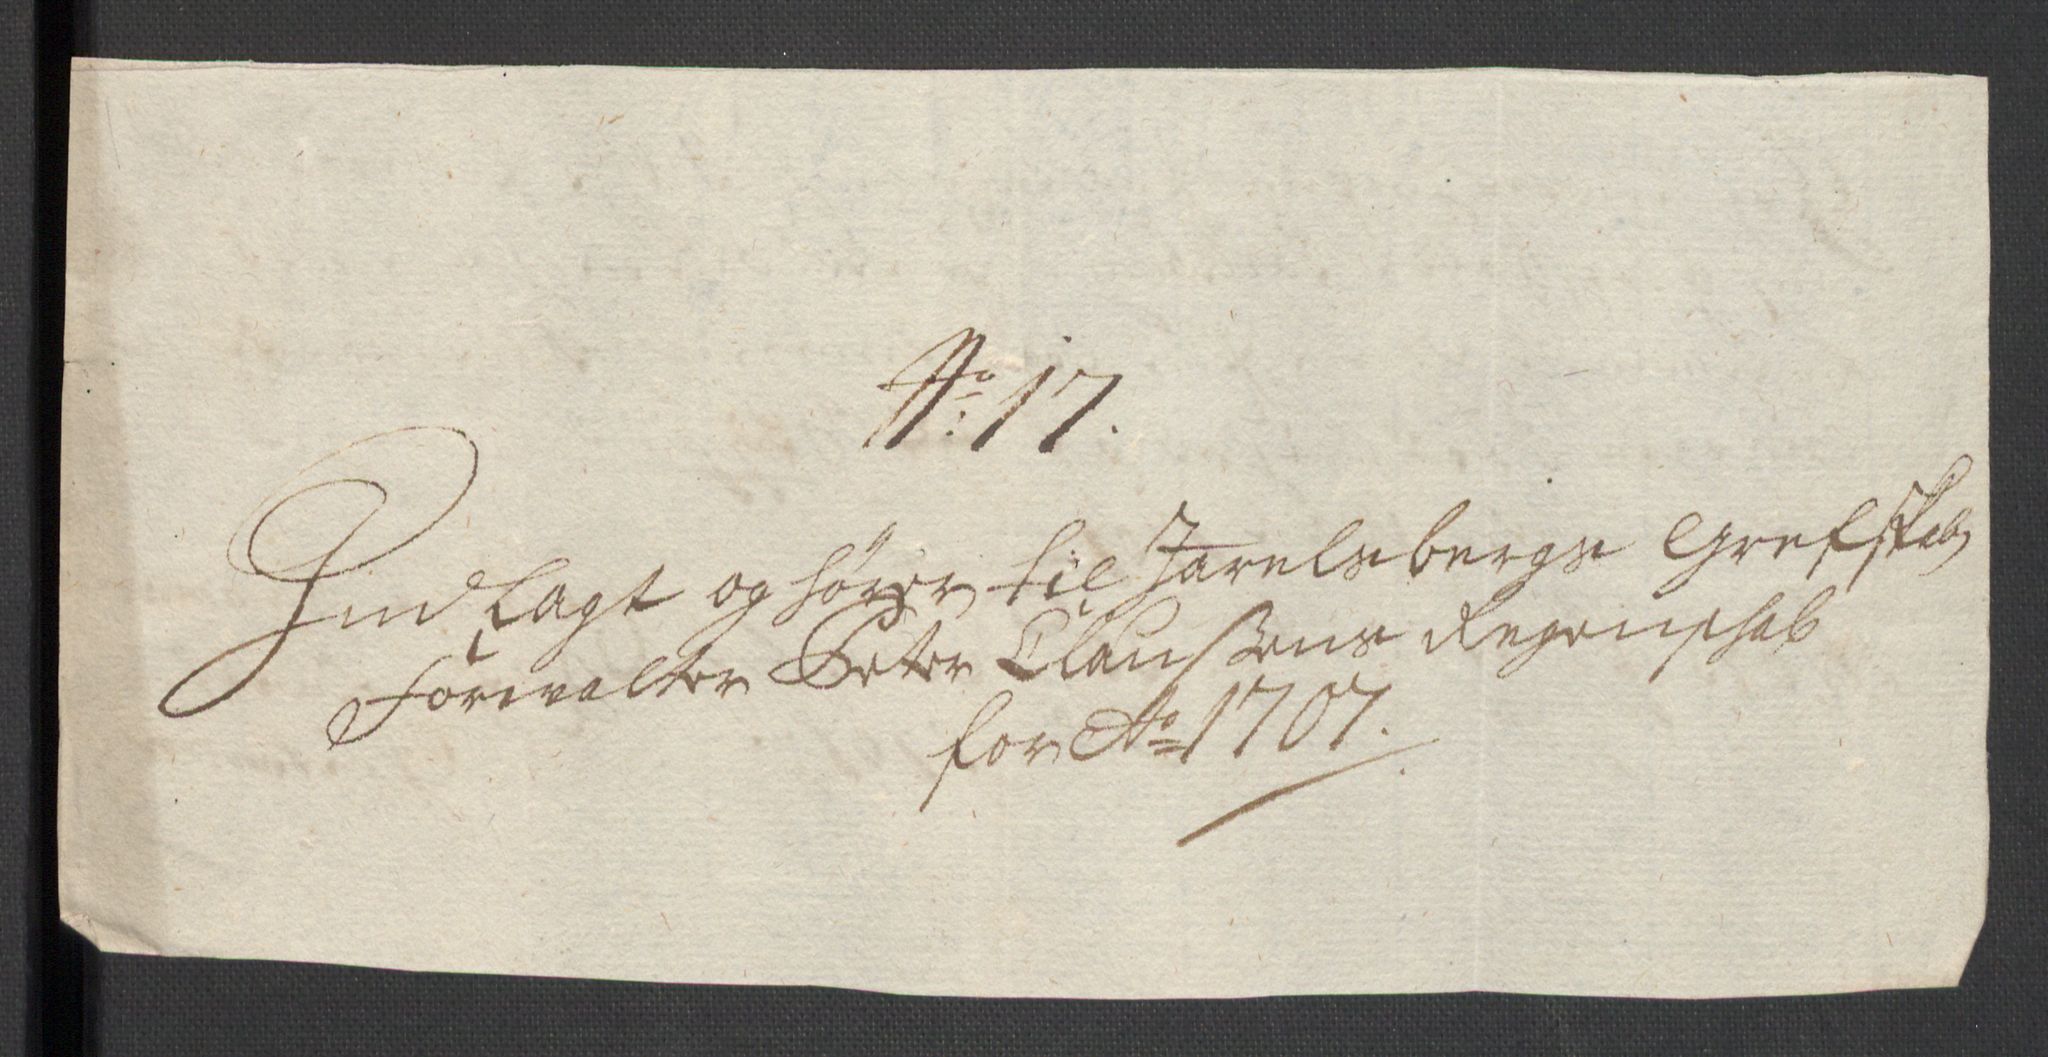 No: 17.
Indlagt og hører til Jarelsbergs Grefskab
Forwalter Peter Claußens Regenschab
for Ao 1707.